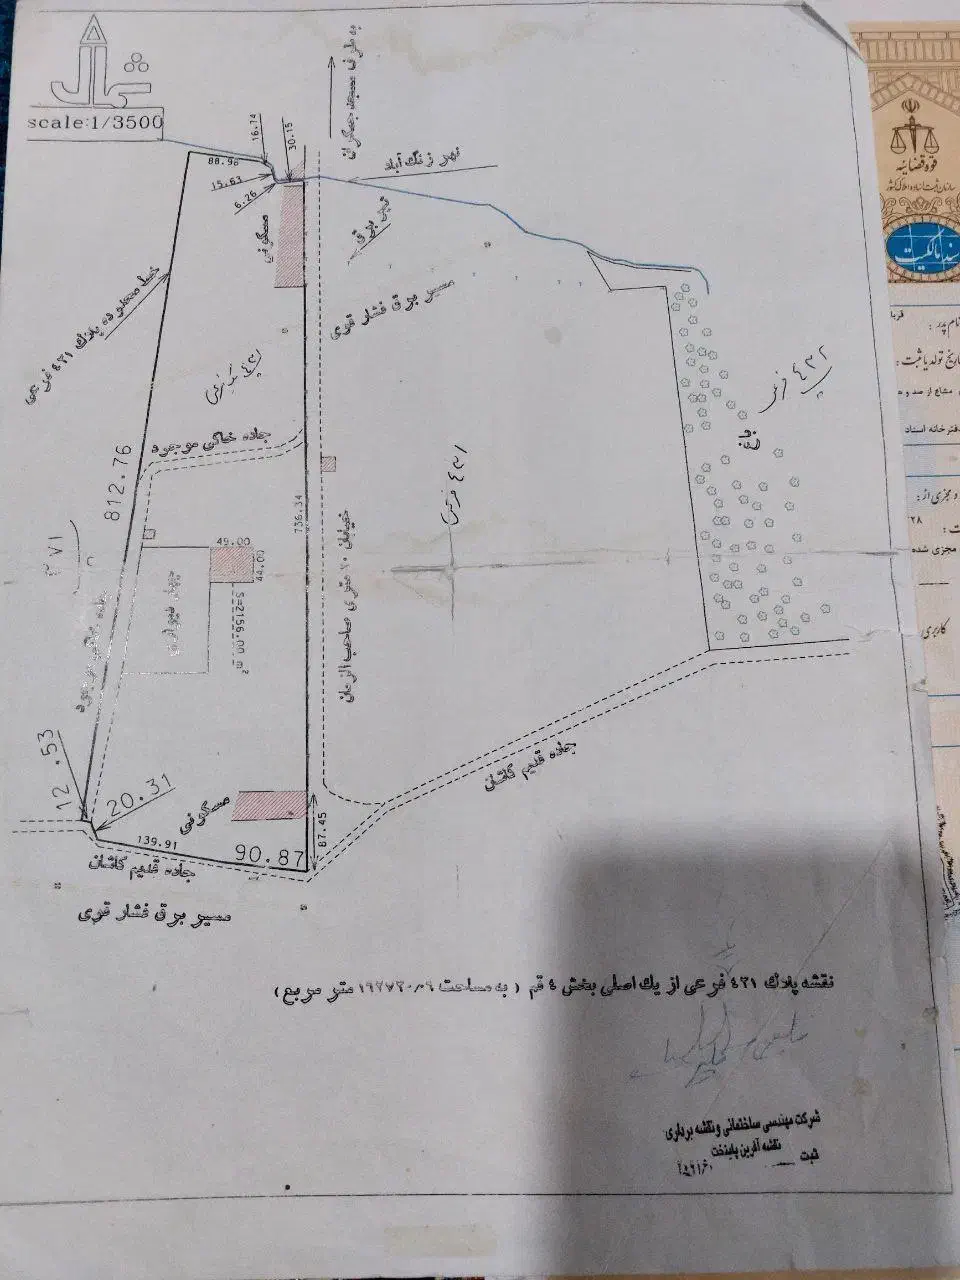 شمال
scale:1/3500
به طرف مسجد جمکران
16.74
30.15
88.96
15.63
6.26
نهر زنگ آباد
تیر برق
مسکونی
مسیر برق فشار قوی
خط محدوده پلاک ۴۳۱ فرعی
۴۳۲ فرعی
باغ
جاده خاکی موجود
812.76
736.34
۴۳۱ فرعی
خیابان ۲۰ متری صاحب الزمان
۳۷۱
49.00
44.00
S=2156.00 m2
جاده خاکی موجود
12.53
20.31
مسکونی
139.91
90.87
87.45
جاده قدیم کاشان
جاده قدیم کاشان
مسیر برق فشار قوی
نقشه پلاک ۴۳۱ فرعی از یک اصلی بخش ۴ قم
متر مربع)
شرکت مهندسی ساختمانی و نقشه برداری
نقشه آفرین پایتخت
ثبت
قوه قضائیه
سازمان ثبت اسناد و املاک کشور
سند مالکیت
نام پدر :
تاریخ تولد یا ثبت :
مشاع از صد و
دفترخانه اسناد
و مجزی از :
۲۸
مجزی شده
کاربری